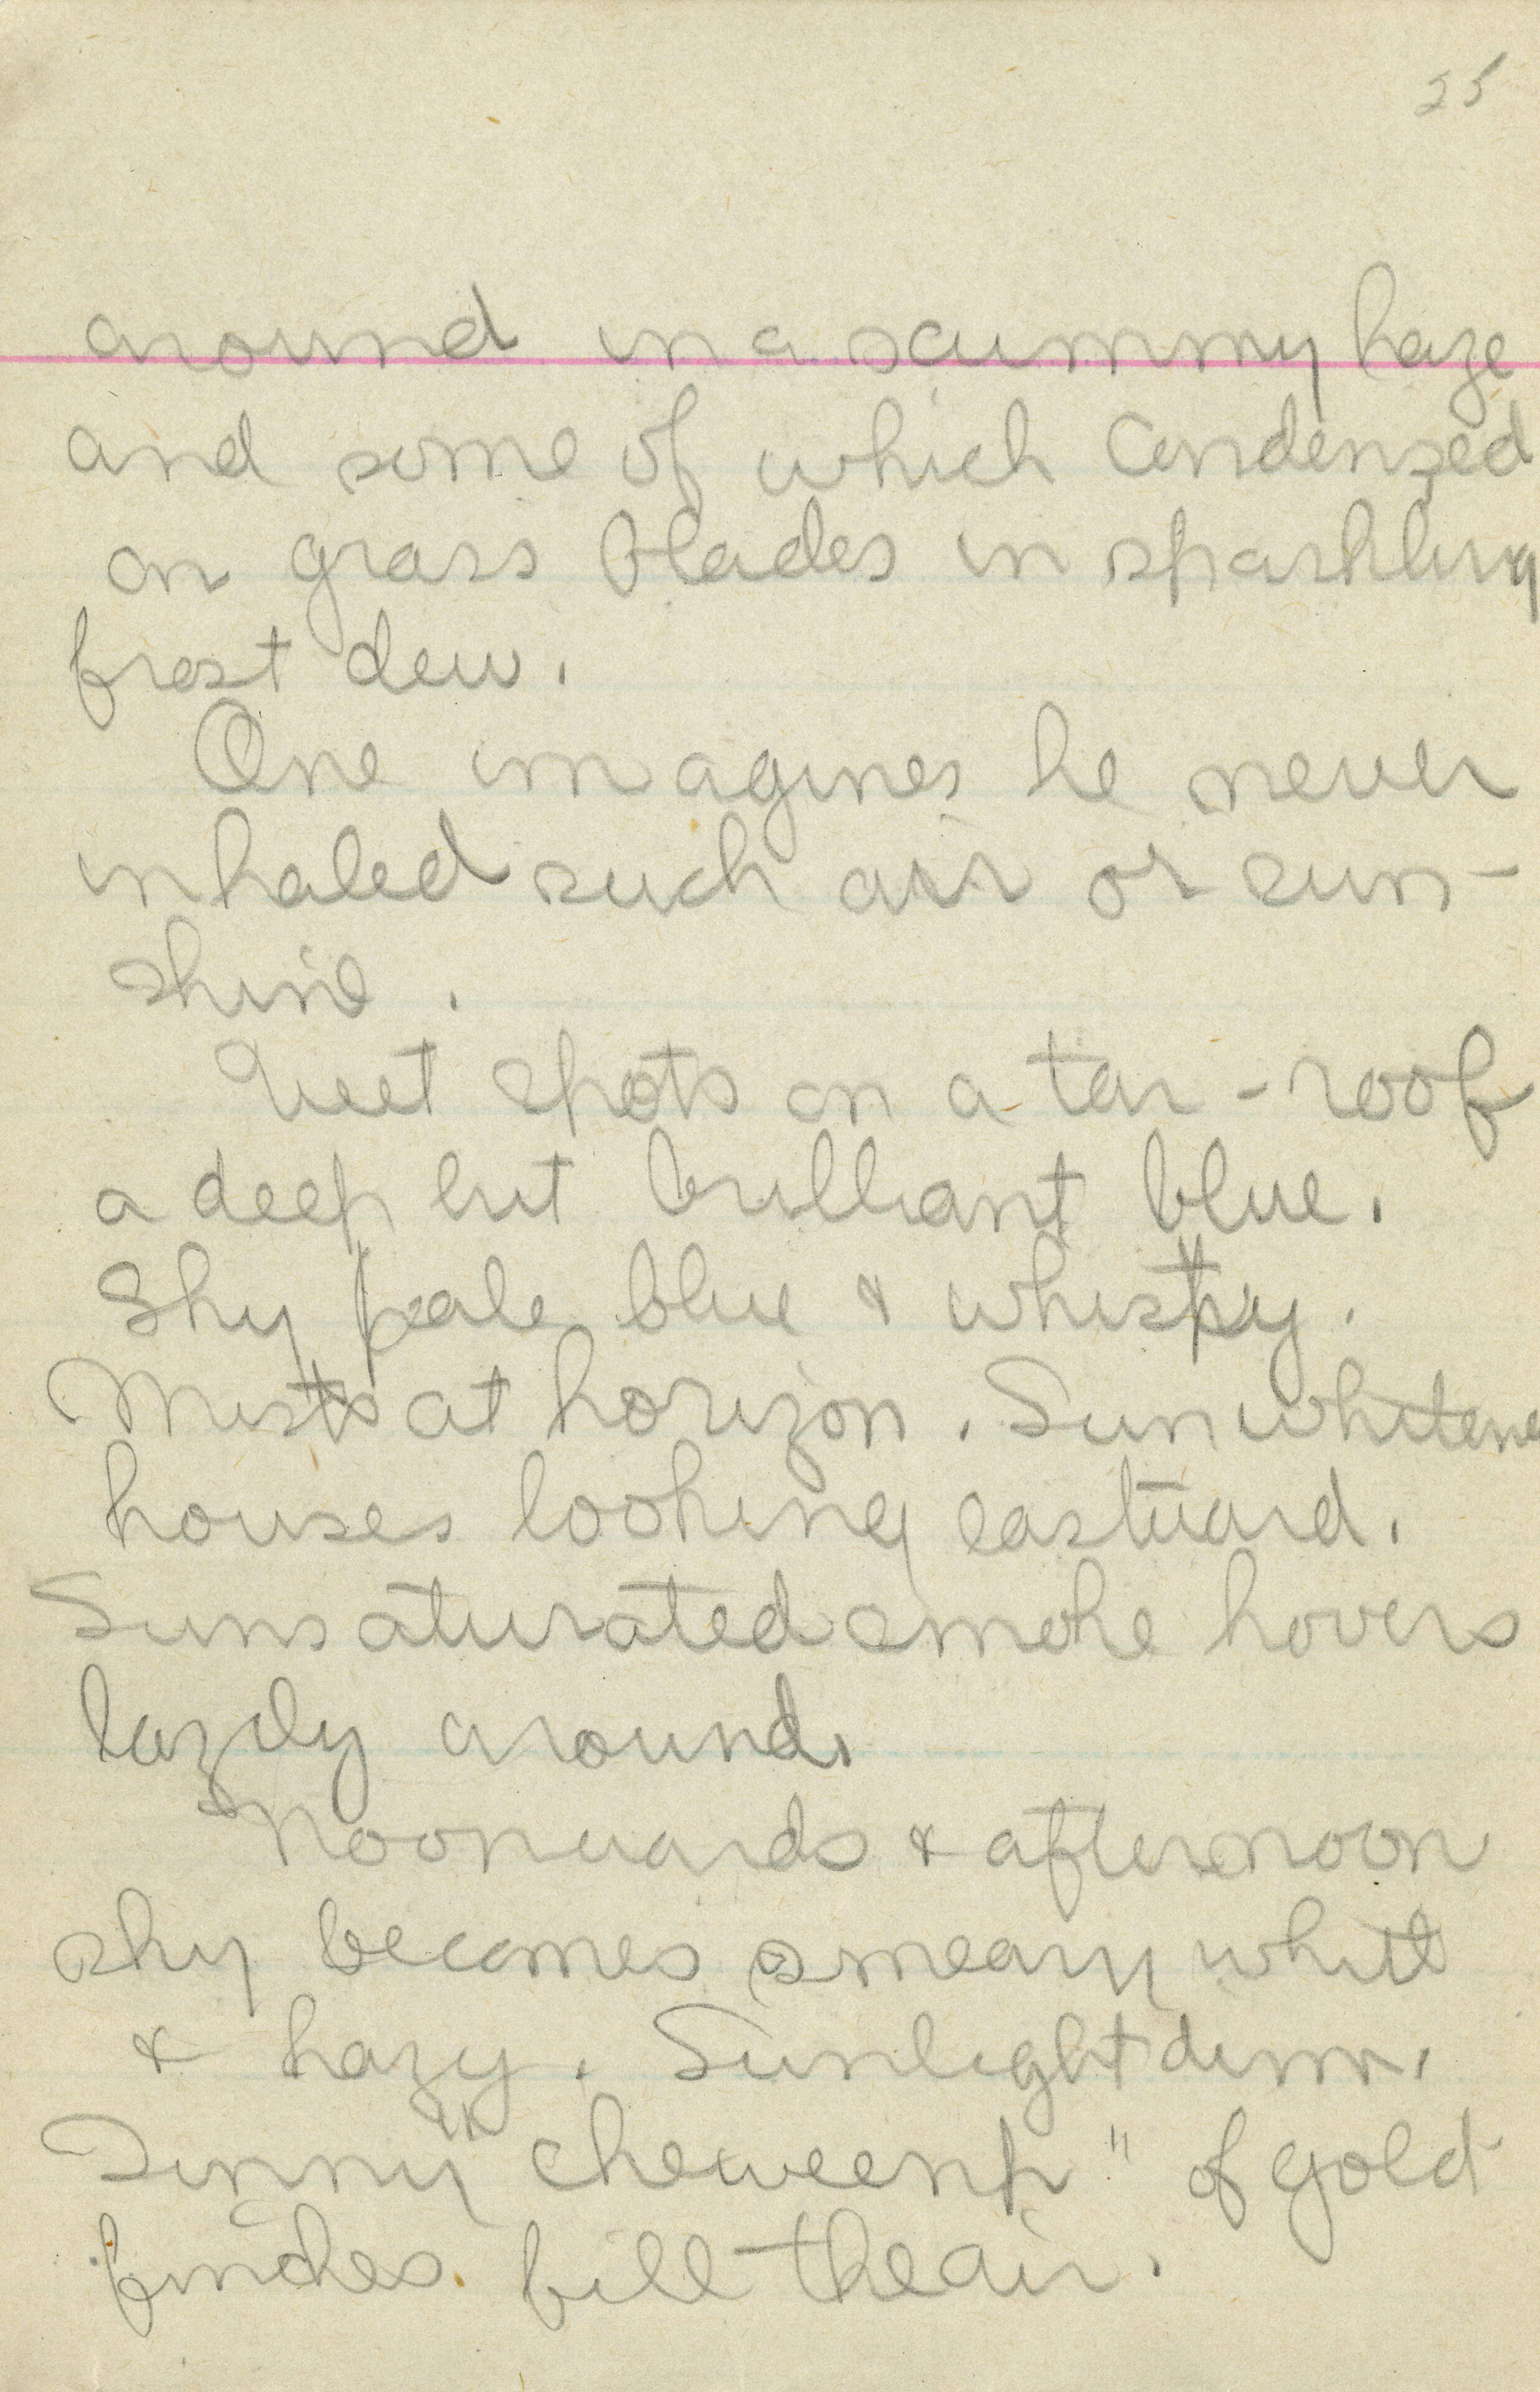 25
around in a scummy haze
and some of which condensed
on grass blades in sparkling
frost dew.
One imagines he never
inhaled such air or sun-
shine.
Wet spots on a tar-roof
a deep but brilliant blue.
Sky pale blue & whispy.
Mists at horizon. Sun whitens
houses looking eastward.
Sun saturated smoke hovers
lazily around.
Noonwards & afternoon
sky becomes smeary white
& hazy. Sunlight dim.
Tinny "cheweenp" of gold
finches fill the air.